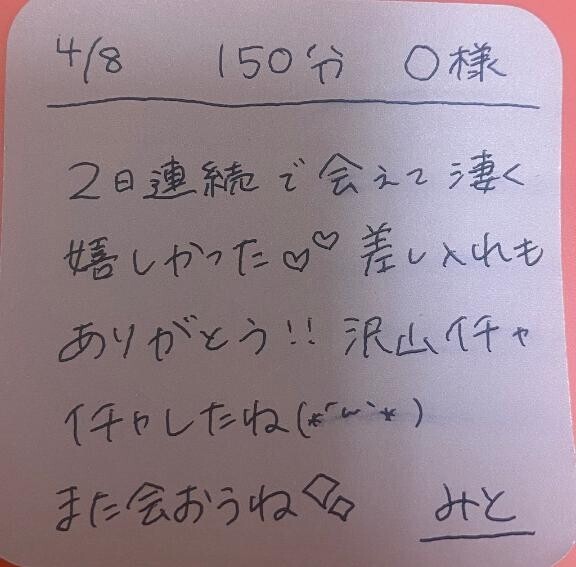 4/8 150分 〇様
2日連続で会えて凄く
嬉しかった♡♡ 差し入れも
ありがとう!! 沢山イチャ
イチャしたね(*´ω`*)
また会おうね◇◇ みと